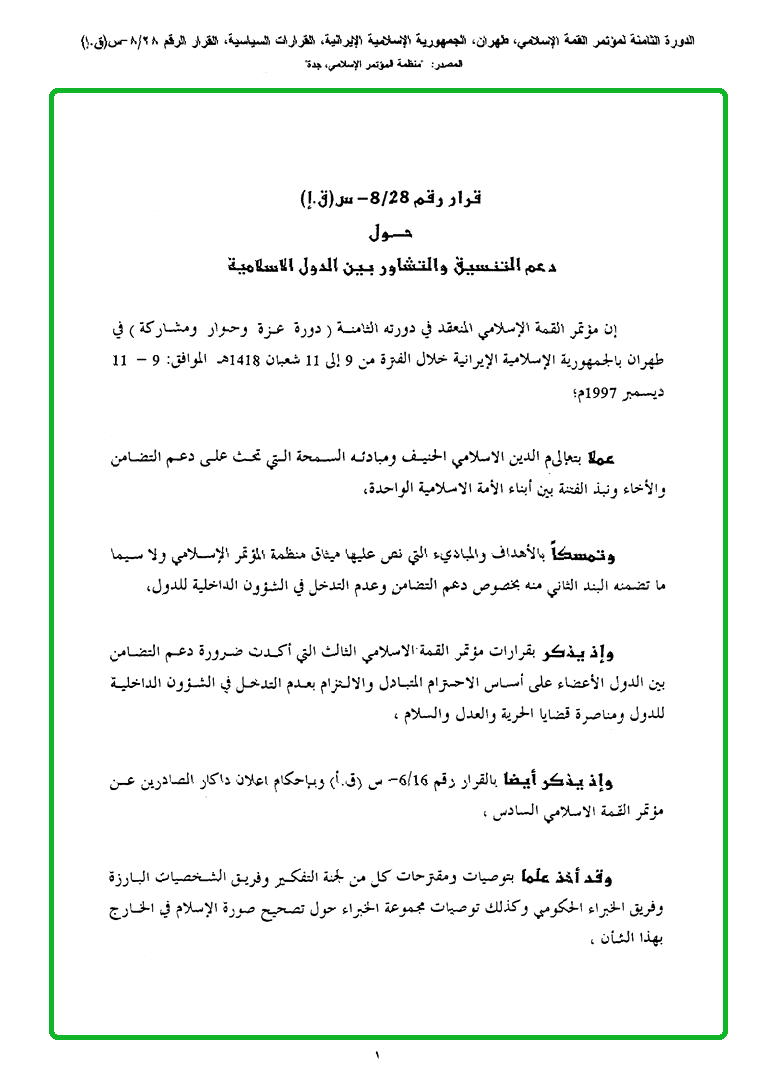 الدورة الثامنة لمؤتمر القمة الإسلامي، طهران، الجمهورية الإسلامية الإيرانية، القرارات السياسية، القرار الرقم ٨/٢٨-س(ق.إ)
المصدر: "منظمة المؤتمر الإسلامي، جدة"
قرار رقم 8/28– س(ق.إ)
حـول
دعم التنسيق والتشاور بين الدول الاسلامية
إن مؤتمر القمة الإسلامي المنعقد في دورته الثامنة ( دورة عزة وحوار ومشاركة ) في
طهران بالجمهورية الإسلامية الإيرانية خلال الفترة من 9 إلى 11 شعبان 1418هـ الموافق: 9 – 11
ديسمبر 1997م؛
عملا بتعاليم الدين الاسلامي الحنيف ومبادئه السمحة التي تحث على دعم التضامن
والأخاء ونبذ الفتنة بين أبناء الأمة الاسلامية الواحدة،
وتمسكاً بالأهداف والمباديء التي نص عليها ميثاق منظمة المؤتمر الإسلامي ولا سيما
ما تضمنه البند الثاني منه بخصوص دعم التضامن وعدم التدخل في الشؤون الداخلية للدول،
وإذ يذكر بقرارات مؤتمر القمة الاسلامي الثالث التي أكدت ضرورة دعم التضامن
بين الدول الأعضاء على أساس الاحترام المتبادل والالتزام بعدم التدخل في الشؤون الداخلية
للدول ومناصرة قضايا الحرية والعدل والسلام ،
وإذ يذكر أيضا بالقرار رقم 6/16– س (ق.أ) وبإحكام اعلان داكار الصادرين عن
مؤتمر القمة الاسلامي السادس ،
وقد أخذ علما بتوصيات ومقترحات كل من لجنة التفكير وفريق الشخصيات البارزة
وفريق الخبراء الحكومي وكذلك توصيات مجموعة الخبراء حول تصحيح صورة الإسلام في الخارج
بهذا الشأن ،
١